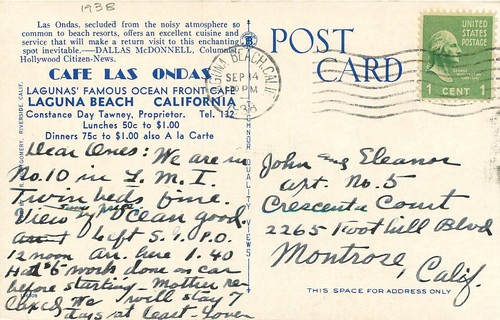 1938
Las Ondas, secluded from the noisy atmosphere so
common to beach resorts, offers an excellent cuisine and
service that will make a return visit to this enchanting
spot inevitable.—DALLAS McDONNELL, Columnist
Hollywood Citizen-News.
CAFE LAS ONDAS
LAGUNAS' FAMOUS OCEAN FRONT CAFE
LAGUNA BEACH CALIFORNIA
Constance Day Tawney, Proprietor. Tel. 132
Lunches 50c to $1.00
Dinners 75c to $1.00 also A la Carte
Dear Ones: We are in
No. 10 in L. M. I.
Twin beds fine.
View of Ocean good.
Left S. P.O.
12 noon arr. here 1.40
Had $6 work done on car
before starting – Mother re
laxed. We will stay 7
days at least – Lover
MONTGOMERY, RIVERSIDE, CALIF.
QUALITY VIEWS
POST CARD
LAGUNA BEACH, CALIF.
SEP 14
PM
1938
UNITED
STATES
POSTAGE
1 CENT 1
John and Eleanor
apt. No. 5
Crescenta Court
2265 Foothill Blvd
Montrose,
Calif.
THIS SPACE FOR ADDRESS ONLY